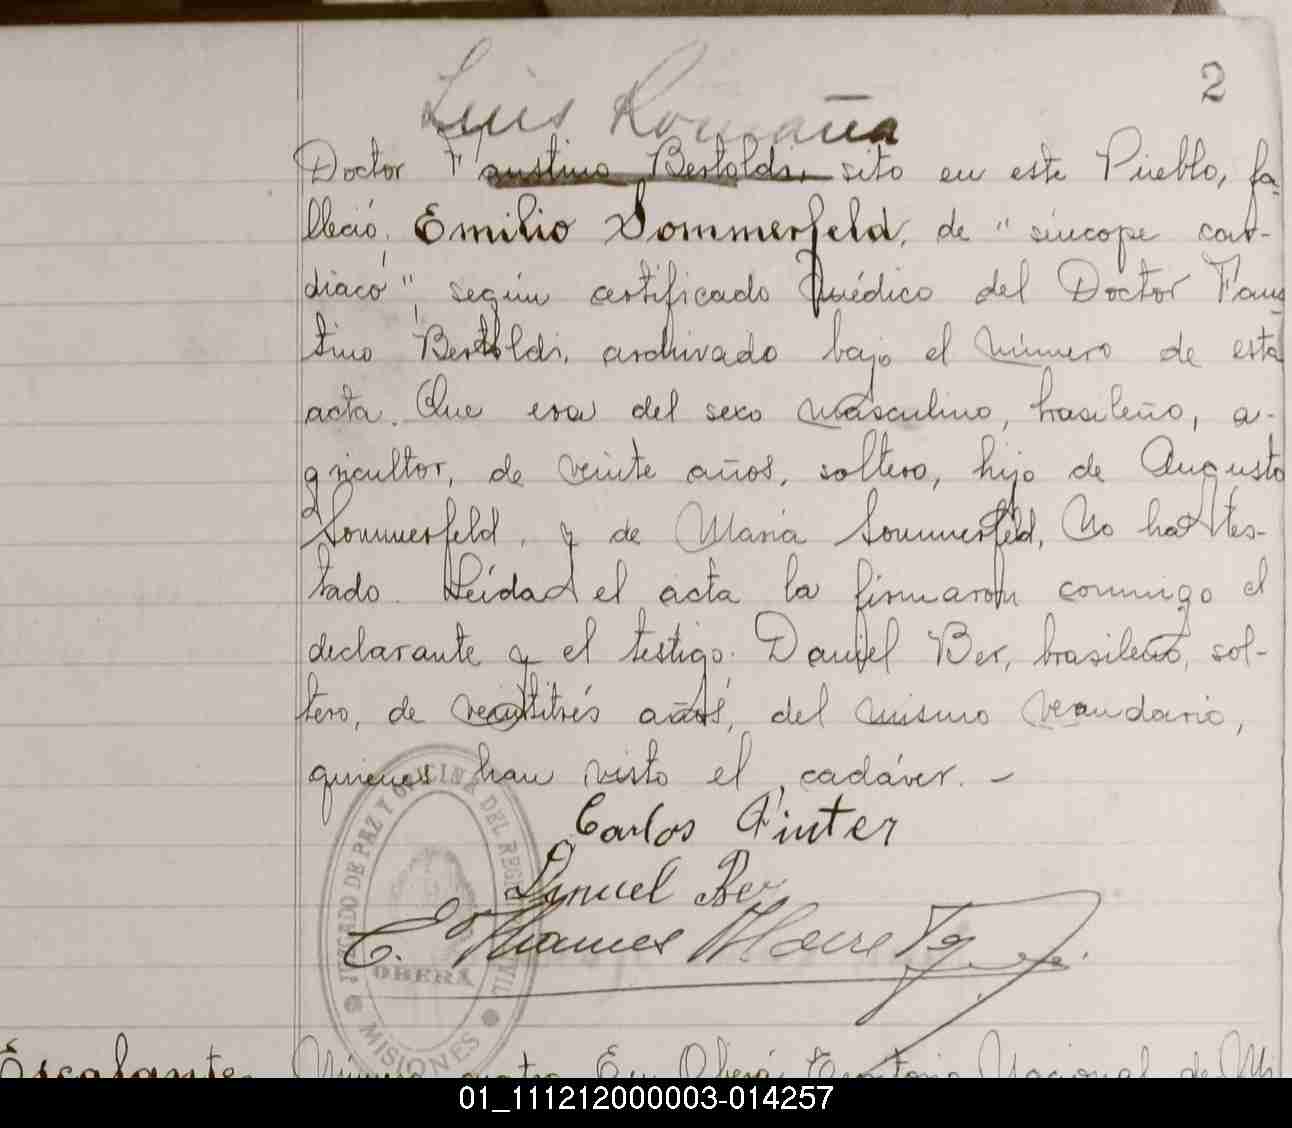 2
Luis Romaña
Doctor Faustino Bertoldi, sito en este Pueblo, fa-
lleció, Emilio Sommerfeld, de "síncope car-
díaco", según certificado médico del Doctor Faus-
tino Bertoldi, archivado bajo el número de esta
acta. Que era del sexo masculino, brasileño, a-
gricultor, de veinte años, soltero, hijo de Augusto
Sommerfeld, y de María Sommerfeld, No ha tes-
tado. Leída el acta la firmaron conmigo el
declarante y el testigo. Daniel Ber, brasileño, sol-
tero, de veintitrés años, del mismo vecindario,
quienes han visto el cadáver. -
Carlos Pinter
Ber
JUZGADO DE PAZ Y OFICINA DEL REGISTRO CIVIL
OBERA
MISIONES
Escalante Número cuatro En Oberá, Territorio Nacional de Mi
01_111212000003-014257